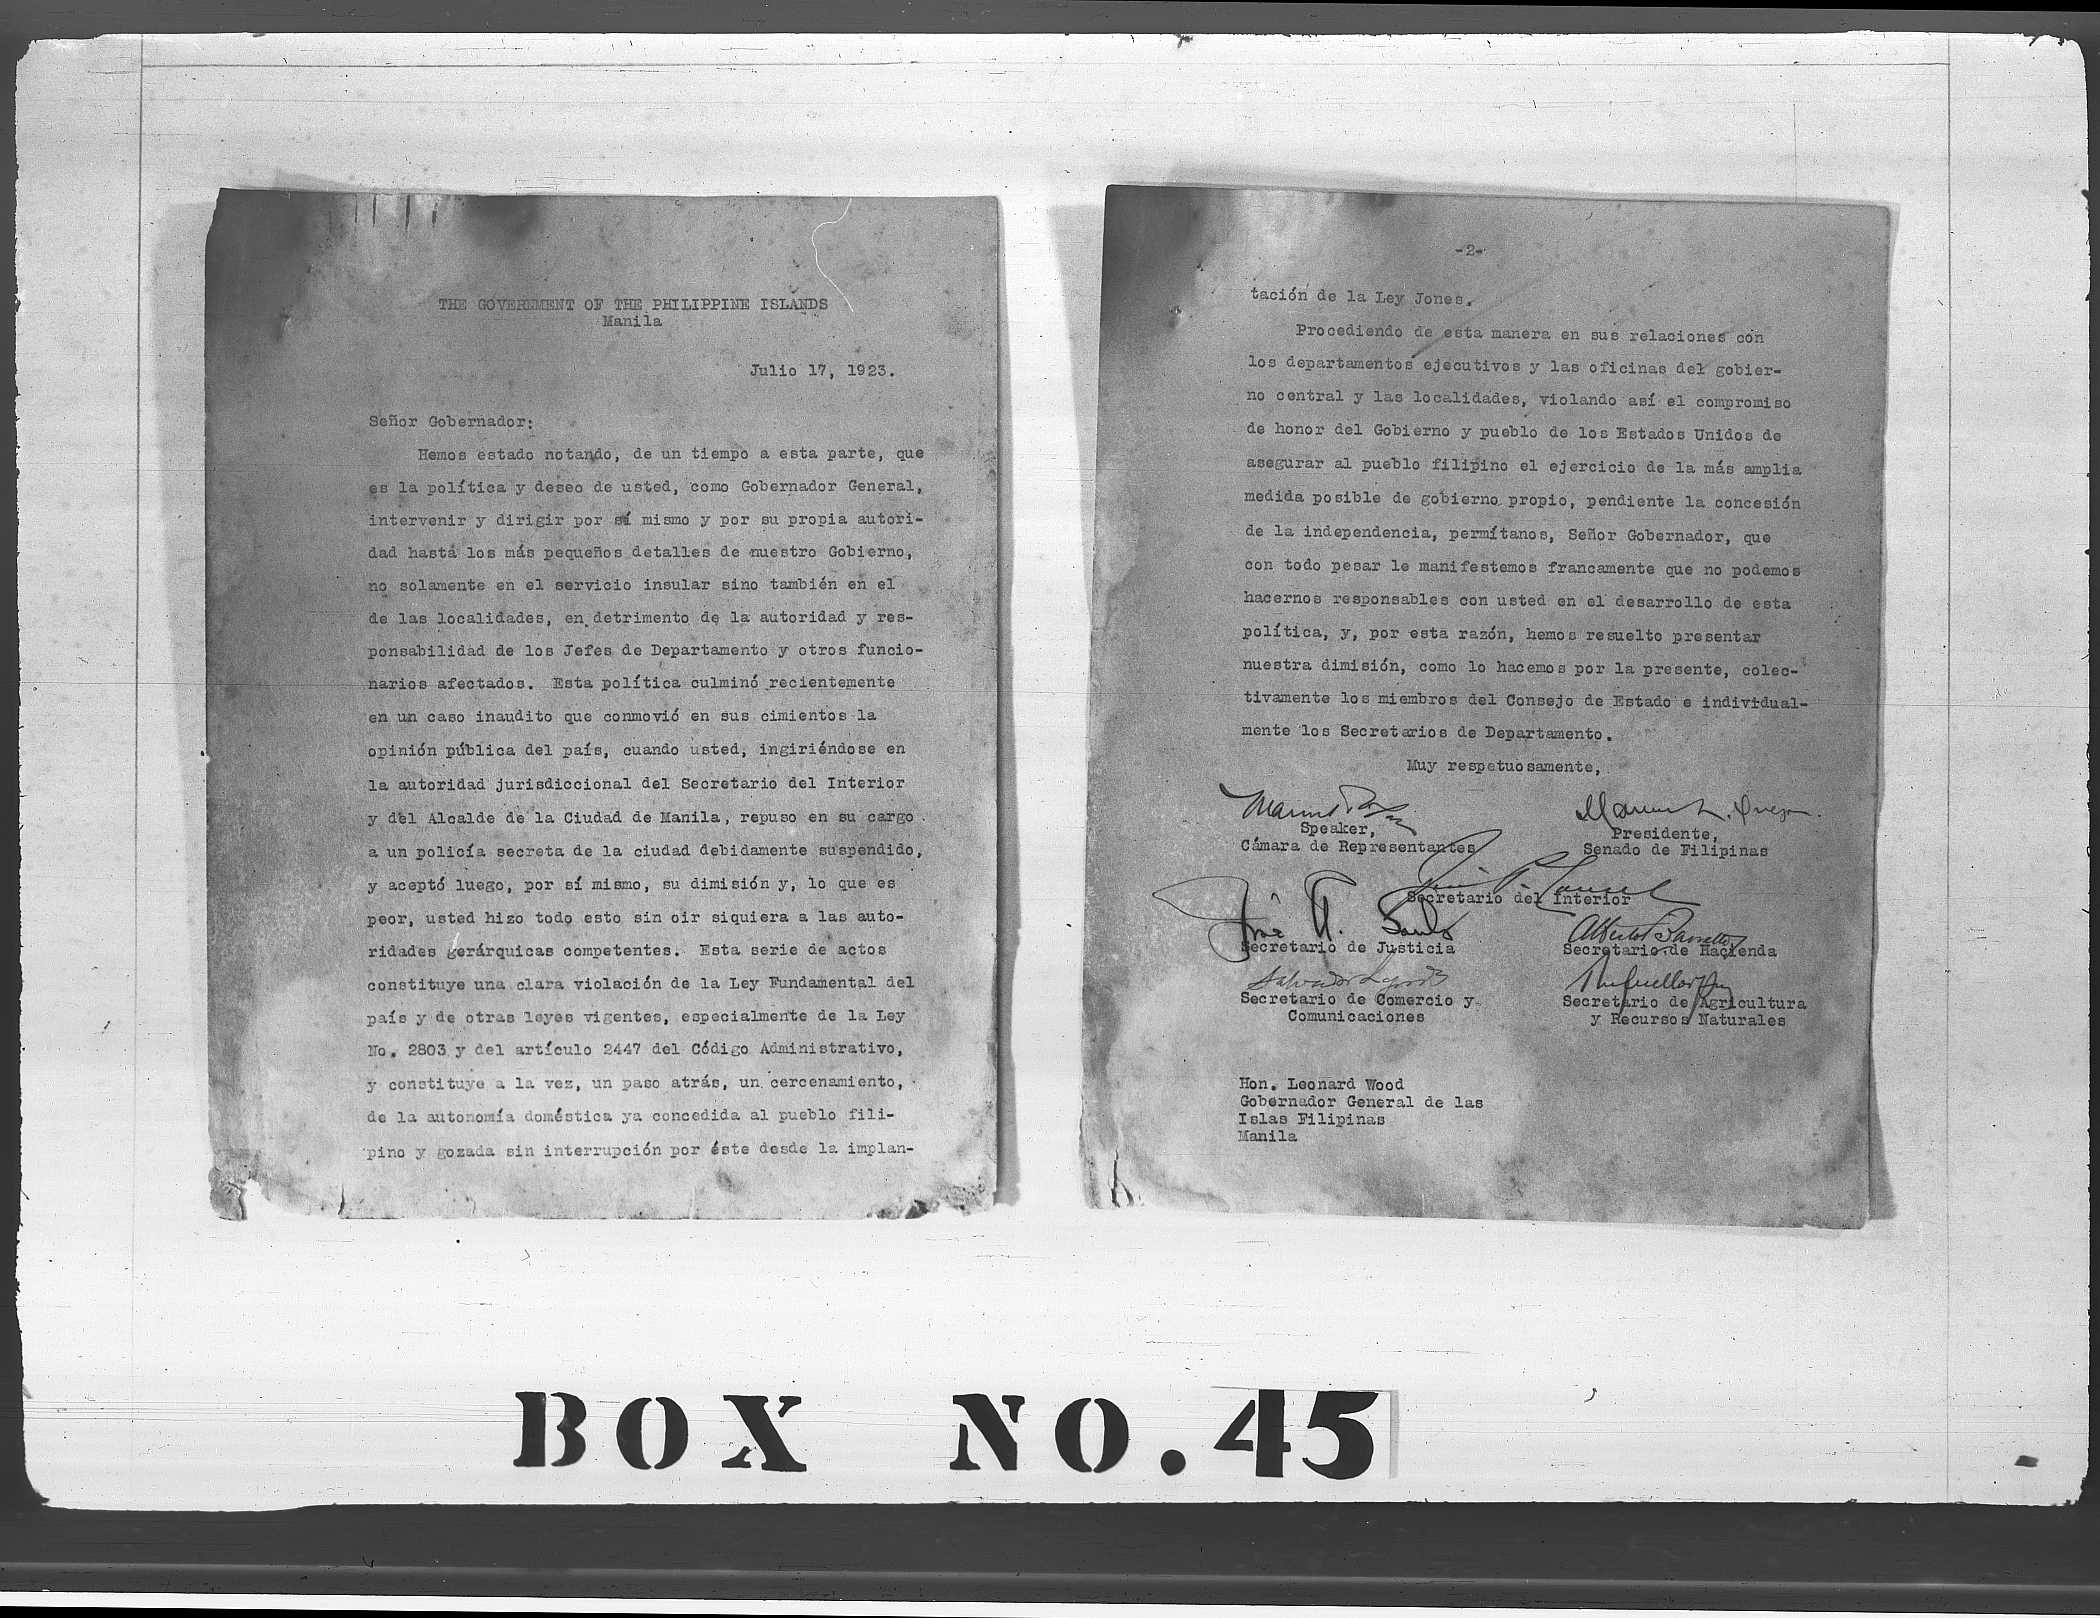 THE GOVERNMENT OF THE PHILIPPINE ISLANDS
Manila
Julio 17, 1923.
Señor Gobernador:
Hemos estado notando, de un tiempo a esta parte, que
es la política y deseo de usted, como Gobernador General,
intervenir y dirigir por sí mismo y por su propia autori-
dad hasta los más pequeños detalles de nuestro Gobierno,
no solamente en el servicio insular sino también en el
de las localidades, en detrimento de la autoridad y res-
ponsabilidad de los Jefes de Departamento y otros funcio-
narios afectados. Esta política culminó recientemente
en un caso inaudito que conmovió en sus cimientos la
opinión pública del país, cuando usted, ingiriéndose en
la autoridad jurisdiccional del Secretario del Interior
y del Alcalde de la Ciudad de Manila, repuso en su cargo
a un policía secreta de la ciudad debidamente suspendido,
y aceptó luego, por sí mismo, su dimisión y, lo que es
peor, usted hizo todo esto sin oir siquiera a las auto-
ridades gerárquicas competentes. Esta serie de actos
constituye una clara violación de la Ley Fundamental del
país y de otras leyes vigentes, especialmente de la Ley
No. 2803 y del artículo 2447 del Código Administrativo,
y constituye a la vez, un paso atrás, un cercenamiento,
de la autonomía doméstica ya concedida al pueblo fili-
pino y gozada sin interrupción por éste desde la implan-
-2-
tación de la Ley Jones.
Procediendo de esta manera en sus relaciones con
los departamentos ejecutivos y las oficinas del gobier-
no central y las localidades, violando así el compromiso
de honor del Gobierno y pueblo de los Estados Unidos de
asegurar al pueblo filipino el ejercicio de la más amplia
medida posible de gobierno propio, pendiente la concesión
de la independencia, permítanos, Señor Gobernador, que
con todo pesar le manifestemos francamente que no podemos
hacernos responsables con usted en el desarrollo de esta
política, y, por esta razón, hemos resuelto presentar
nuestra dimisión, como lo hacemos por la presente, colec-
tivamente los miembros del Consejo de Estado e individual-
mente los Secretarios de Departamento.
Muy respetuosamente,
Manuel L. Quezon
Speaker,
Cámara de Representantes
Presidente,
Senado de Filipinas
Secretario del Interior
José A. Santos
Alberto Barretto
Secretario de Justicia
Secretario de Hacienda
Salvador
Secretario de Comercio y
Comunicaciones
Secretario de Agricultura
y Recursos Naturales
Hon. Leonard Wood
Gobernador General de las
Islas Filipinas
Manila
BOX NO. 45